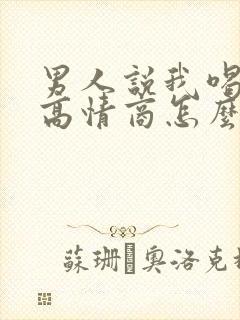 男人說我喝
高情商怎麼
蘇珊 奧洛克